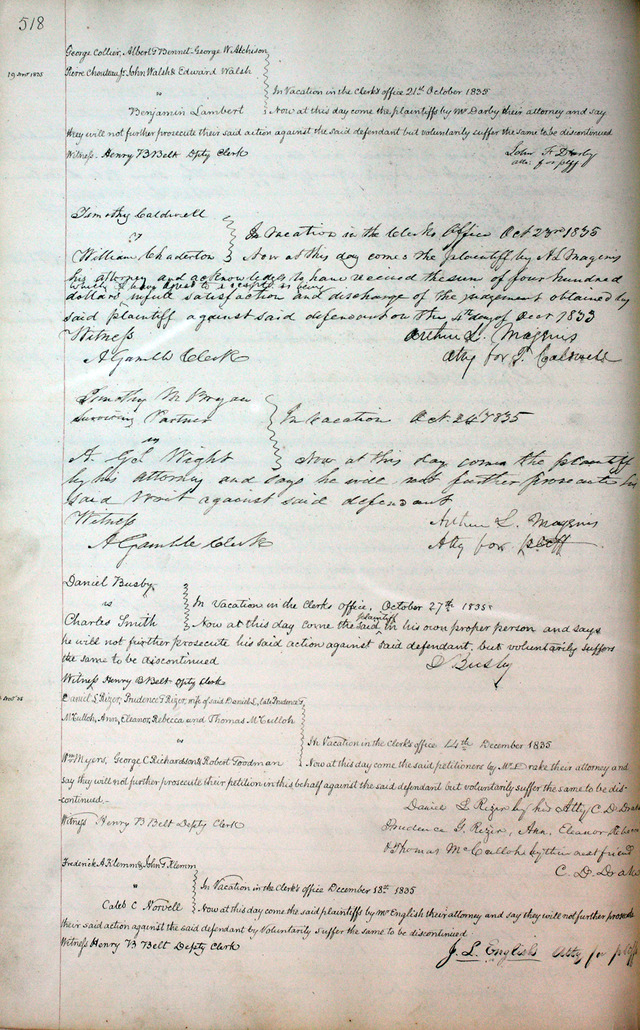 518
George Collier, Albert G Bonnet-George W. Atchison
Pierre Chouteau Jr John Walsh & Edward Walsh
19 Nov 1835
"
In Vacation in the Clerks office 21st October 1835
Benjamin Lambert
Now at this day come the plaintiffs by Mr Darby their attorney and say
they will not further prosecute their said action against the said defendant but voluntarily suffer the same to be discontinued
Witness. Henry B Belt Dpty Clerk
John F Darby
atto. for plff
Timothy Caldwell
v
In Vacation in the Clerks Office Oct 23rd 1835
William Chaderton
Now at this day comes the plaintiff by A L Magenis
his attorney and acknowledges to have received the sum of four hundred
dollars in full satisfaction and discharge of the judgement obtained by
said plaintiff against said defendant on the 4th day of Oct 1833
Witness
Arthur L. Magenis
A Gamble Clerk
Atty for T. Caldwell
Timothy M Bryan
Surviving Partner
In Vacation Oct. 24th 1835
vs
A G Wight
Now at this day comes the plaintiff
by his attorney and says he will not further prosecute his
said Writ against said defendant
Witness
Arthur L. Magenis
A Gamble Clerk
Atty for plff
Daniel Busby
vs
In Vacation in the Clerks office, October 27th 1835
Charles Smith
Now at this day come the said plaintiff in his own proper person and says
he will not further prosecute his said action against said defendant, but voluntarily suffers
the same to be discontinued
D Busby
Witness Henry B Belt Dpty Clerk
Daniel L Rizer, Prudence G Rizer, wife of said Daniel L, late Prudence G
McCulloh, Ann, Eleanor, Rebecca and Thomas McCulloh
"
In Vacation in the Clerks office 14th December 1835
Wm Myers, George C Richardson & Robert Goodman
Now at this day come the said petitioners by Mr Drake their attorney and
say they will not further prosecute their petition in this behalf against the said defendant but voluntarily suffer the same to be dis-
continued-
Daniel L Rizer by his Atty C. D. Drake
Witness Henry B Belt Deputy Clerk
Prudence G. Rizer, Ann, Eleanor
& Thomas McCulloh by their next friend
C. D. Drake
Frederick A Klemm & John G Klemm
"
In Vacation in the Clerks office December 18th 1835
Caleb C Norvell
Now at this day come the said plaintiffs by Mr English their attorney and say they will not further prosecute
their said action against the said defendant by Voluntarily suffer the same to be discontinued
Witness Henry B Belt Deputy Clerk
J. L. English Atty for plffs